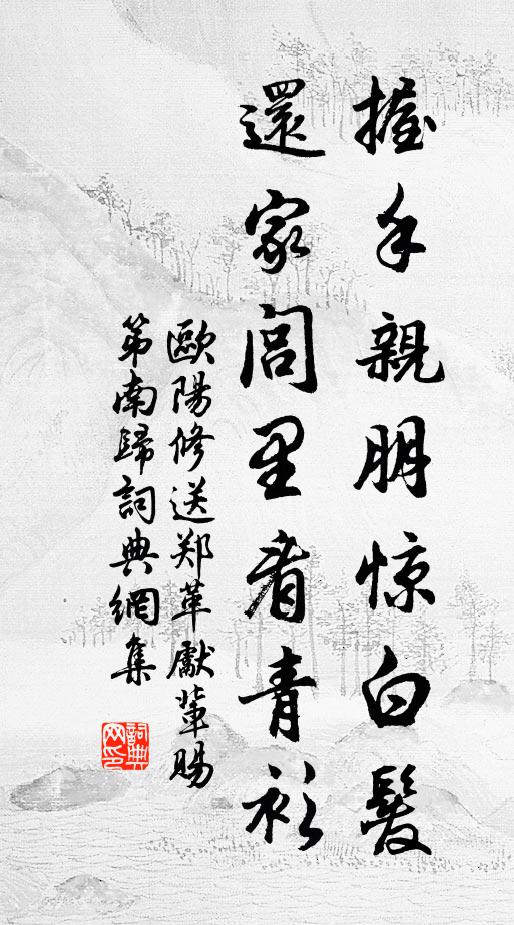 握手親朋惊白髮
還家閭里看青衫
歐陽修送郑革獻輩賜
第南歸詞典網集
詞典
网印